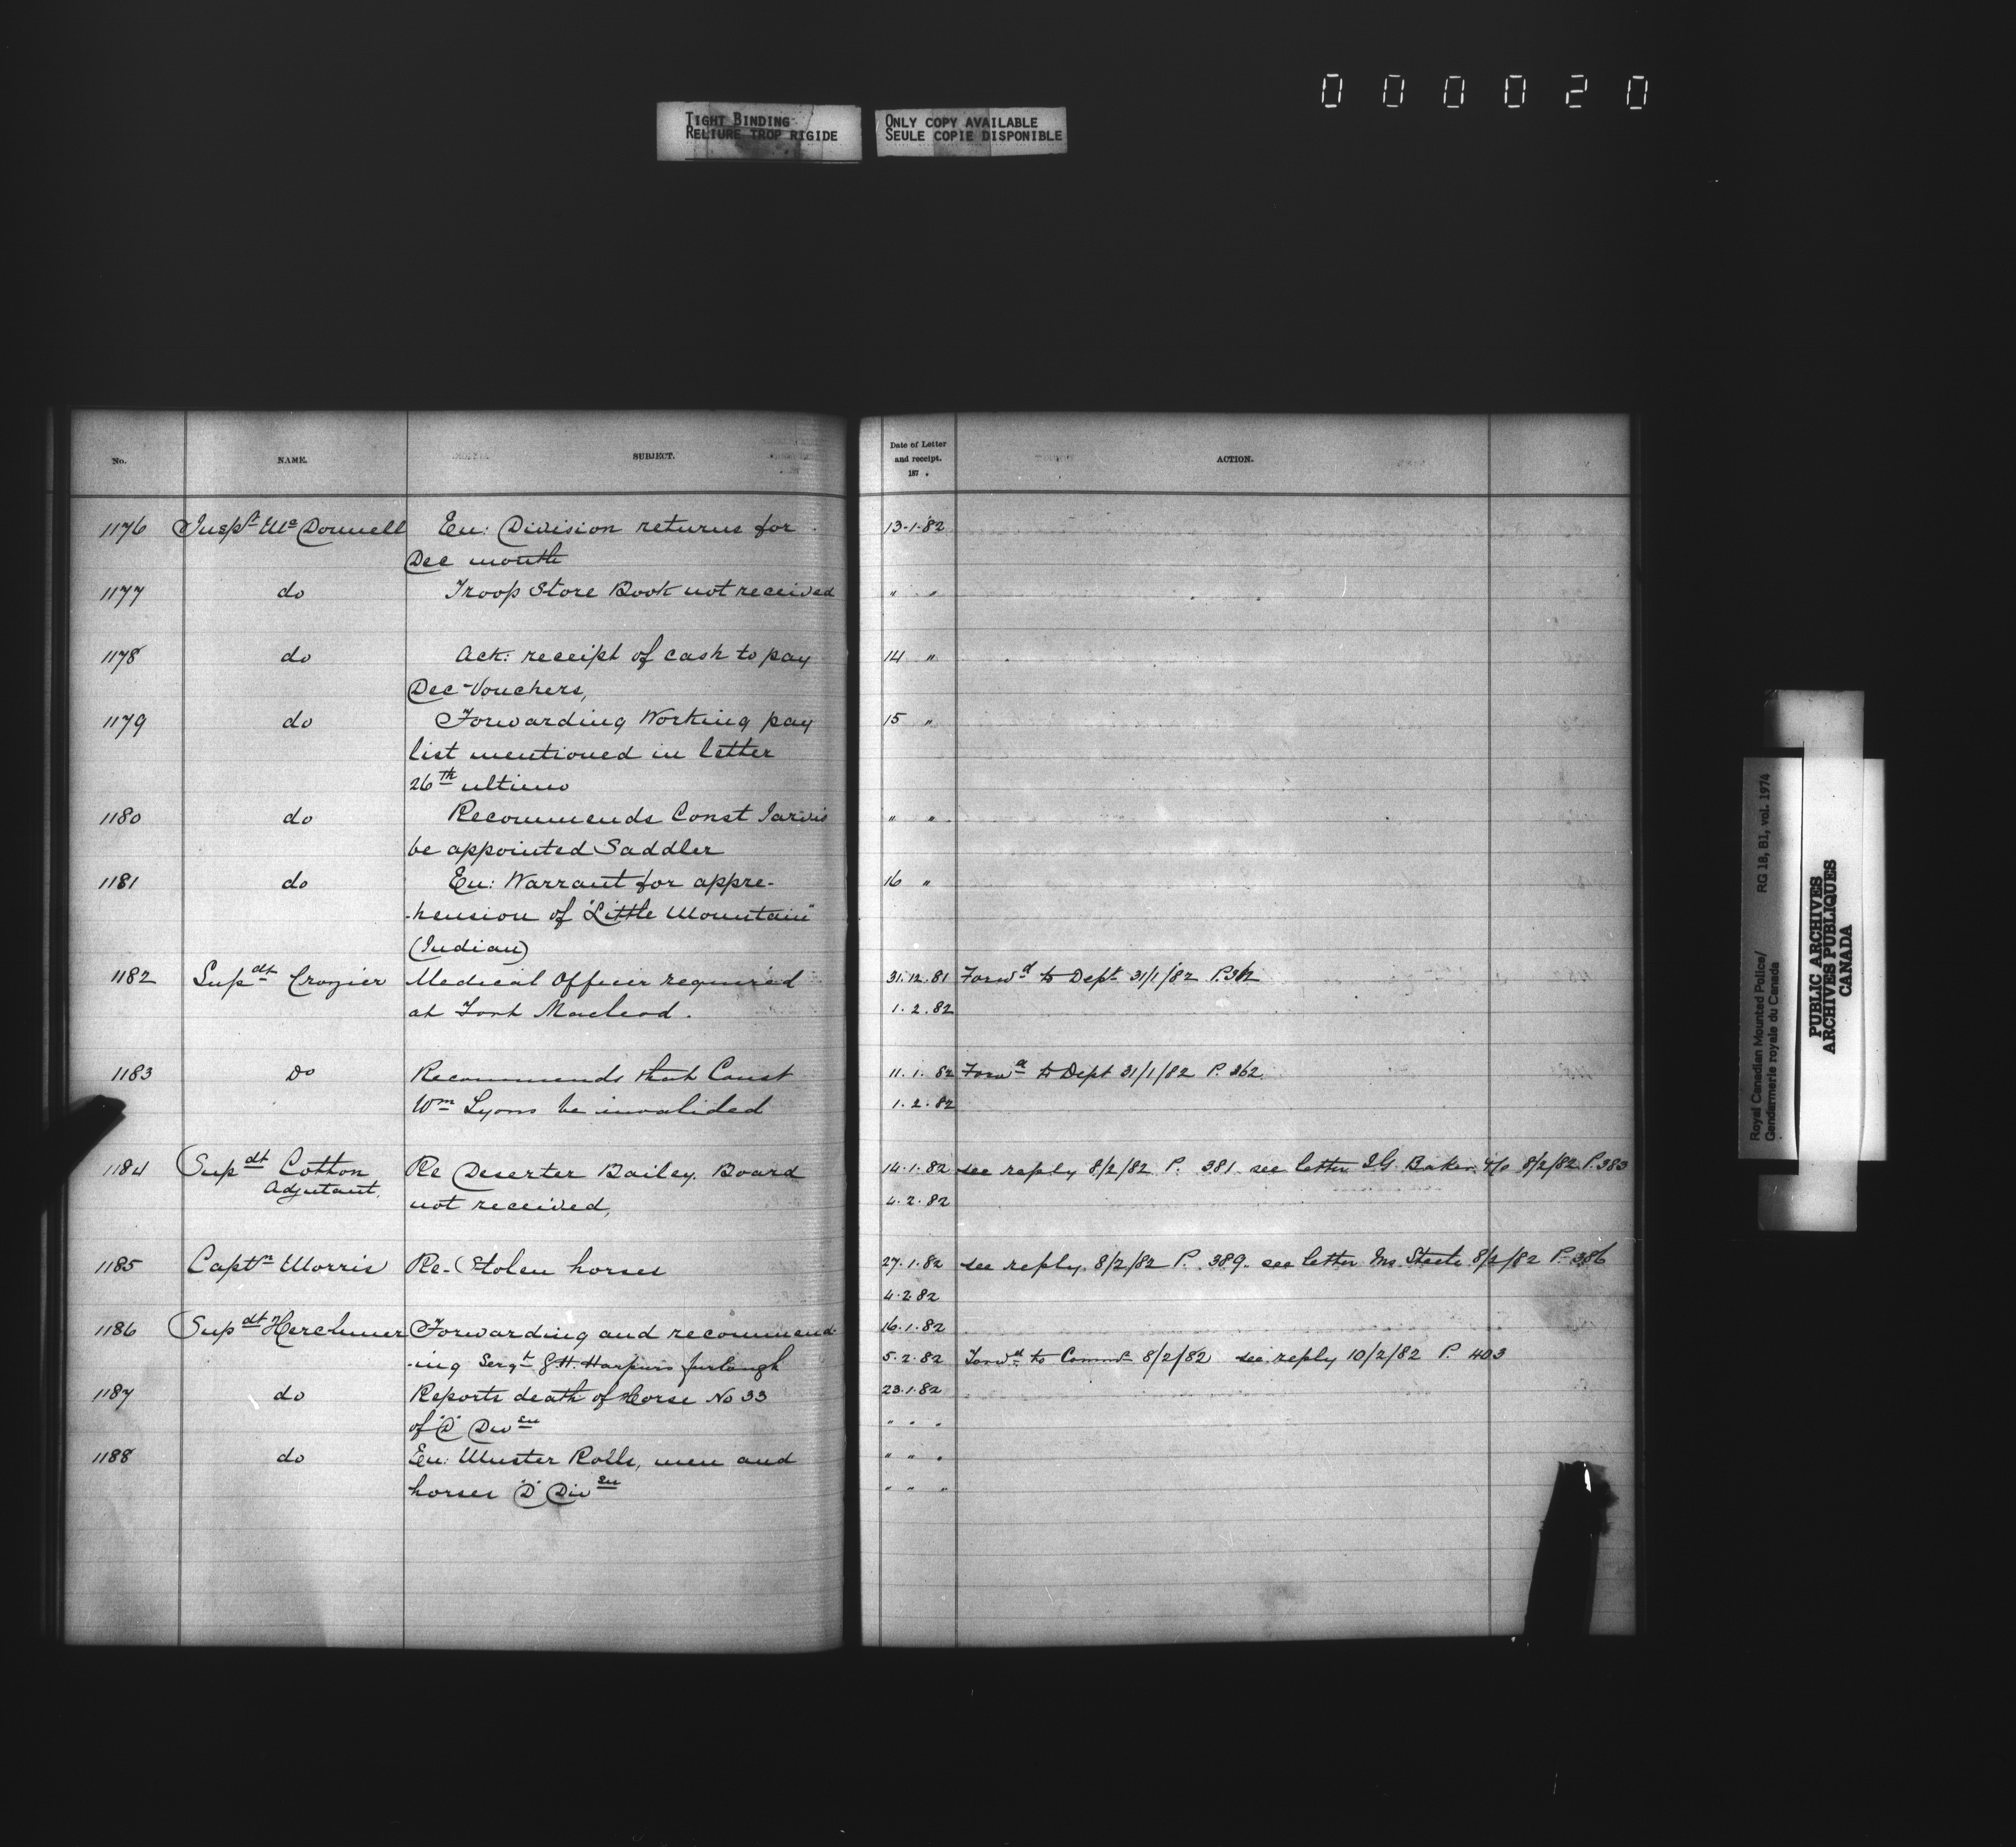 000020
TIGHT BINDING
RELIURE TROP RIGIDE
ONLY COPY AVAILABLE
SEULE COPIE DISPONIBLE
No. NAME. SUBJECT. Date of Letter and receipt. 187 . ACTION.
1176 Inspr McDonnell En: Division returns for 13-1-82
Dec month
1177 do Troop Store Book not received " "
1178 do Ack: receipt of cash to pay 14 "
Dec Vouchers,
1179 do Forwarding Working pay 15 "
list mentioned in letter
26th ultimo
1180 do Recommends Const Jarvis " "
be appointed Saddler
1181 do En: Warrant for appre- 16 "
-hension of "Little Mountain"
(Indian)
1182 Supdt Crozier Medical Officer required 31.12.81 Forwd to Dept 31/1/82 P.362
at Fort Macleod. 1.2.82
1183 Do Recommends that Const 11.1.82 Forwd to Dept 31/1/82 P. 362
Wm Lyons be invalided 1.2.82
1184 Supdt Cotton Re Deserter Bailey. Board 14.1.82 see reply 8/2/82 P. 381 see letter I.G. Baker 8/2/82 P.383
Adjutant. not received, 4.2.82
1185 Captn Morris Re- Stolen horses 27.1.82 see reply 8/2/82 P. 389. see letter Mr. Steele 8/2/82 P. 386
4.2.82
1186 Supdt Herchmer Forwarding and recommend- 16.1.82
-ing Sergt G.H. Harpurs furlough 5.2.82 Forwd to Commr 8/2/82 see reply 10/2/82 P. 403
1187 do Reports death of Horse No 33 23.1.82
of "D" Divsn " " "
1188 do En: Muster Rolls, men and " " "
horses "D" Divsn " " "
Royal Canadian Mounted Police/ RG 18, B1, vol. 1974
Gendarmerie royale du Canada
PUBLIC ARCHIVES
ARCHIVES PUBLIQUES
CANADA